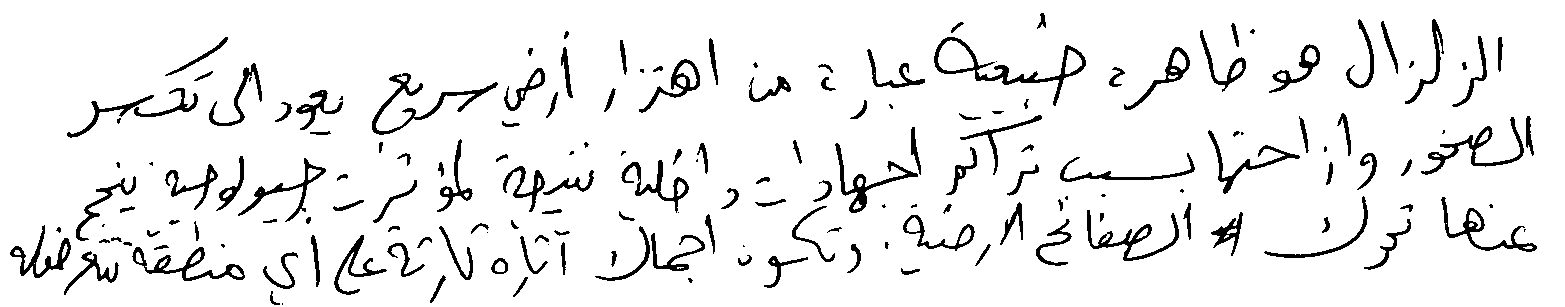 الزلزال هو ظاهرة طبيعية عبارة من اهتزاز أرضي سريع يعود الى تكسر
الصخور وازاحتها بسبب تراكم اجهادات داخلية نتيجة لمؤثرات جيولوجية ينجم
عنها تحرك الصفائح الارضية. وتكون اجمالا آثاره كارثة على أي منطقة تتعرض له